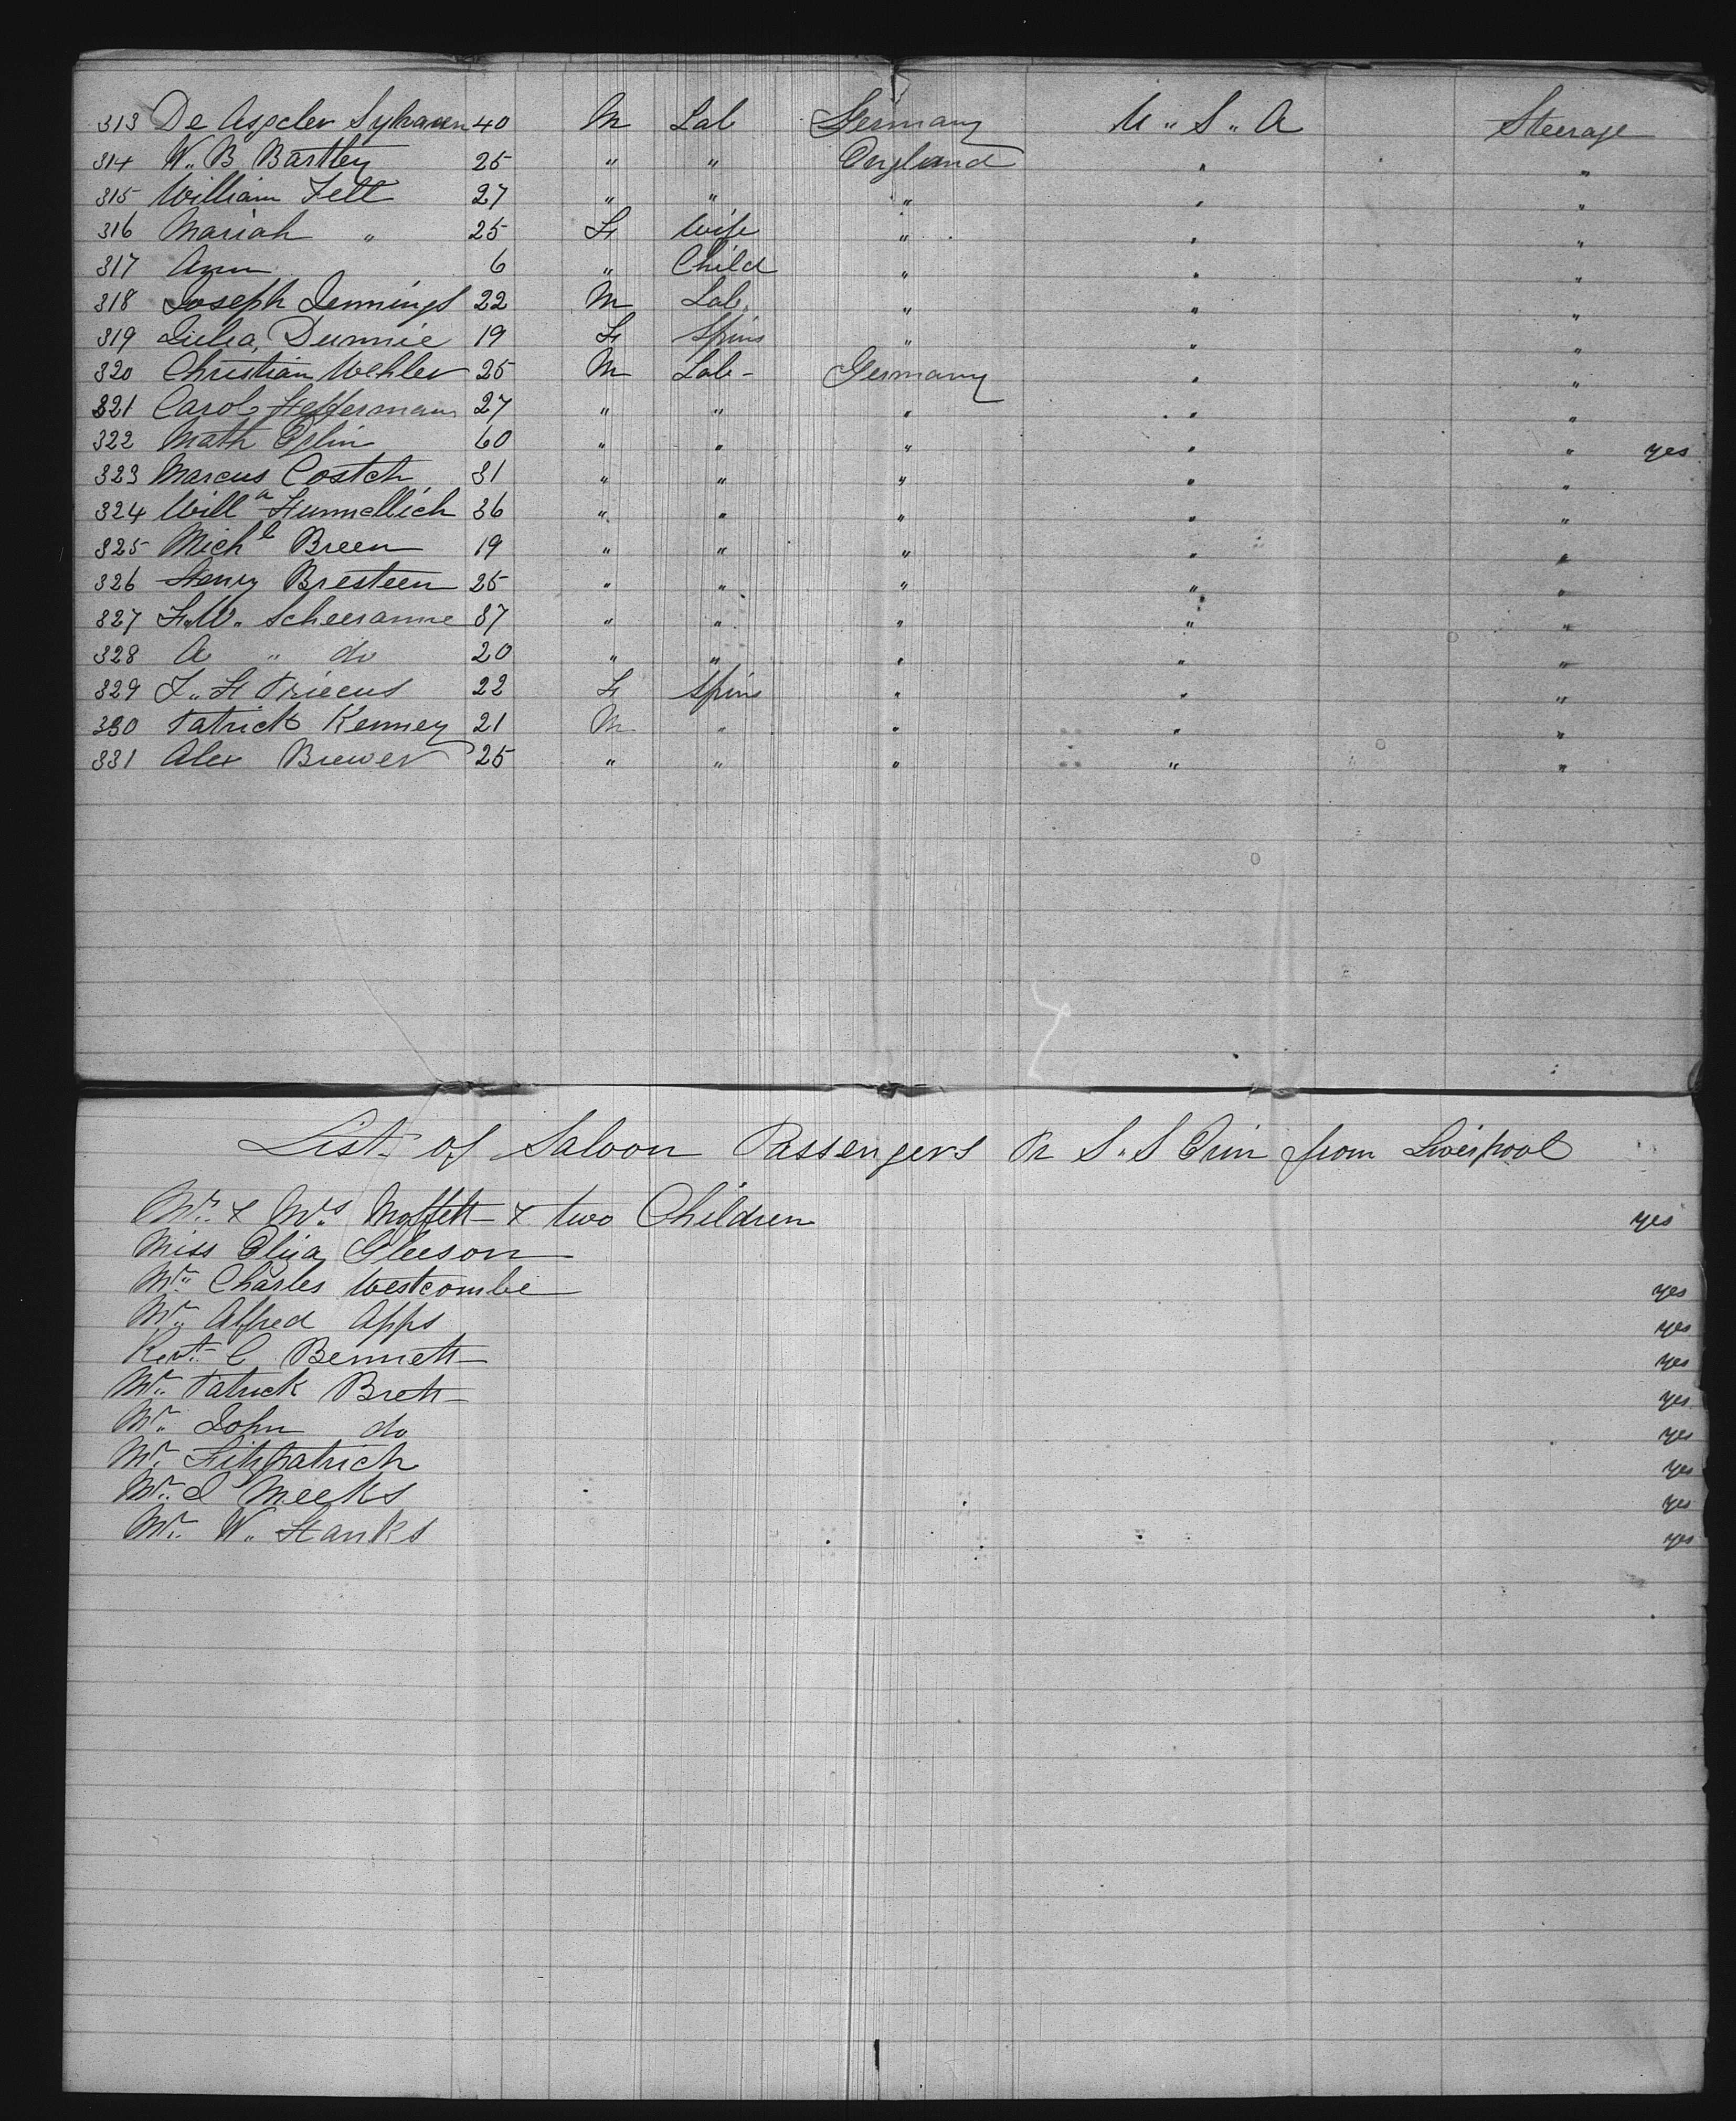 313 De Aspeler Sylvain 40 M Lab Germany U.S.A Steerage
314 W. B. Bartley 25 " " England " "
315 William Fell 27 " " " " "
316 Mariah " 25 F Wife " " "
317 Ann 6 " Child " " "
318 Joseph Jennings 22 M Lab. " " "
319 Julia Dunnie 19 F Spins " " "
320 Christian Wehler 25 M Lab- Germany " "
321 Carol Heffermann 27 " " " " "
322 Math 60 " " " " " yes
323 Marcus Costch 31 " " " " "
324 Willᵐ Hummellich 36 " " " " "
325 Michˡ Breen 19 " " " " "
326 Henry Bresteen 25 " " " " "
327 F. W. Scheeranne 37 " " " " "
328 A " do 20 " " " " "
329 F. H. 22 F Spins " " "
330 Patrick Kenney 21 M " " " "
331 Alex Brewer 25 " " " " "
List of Saloon Passengers Pr S.S Erin from Liverpool
Mr. & Mrs. Moffett & two Children yes
Miss Eliza Gleeson
Mr. Charles Westcombe yes
Mr. Alfred Apps yes
Revd. C Bennett yes
Mr. Patrick Brett yes
Mr. John do yes
Mr. Fitzpatrick yes
Mr. J Meeks yes
Mr. W. Hanks yes